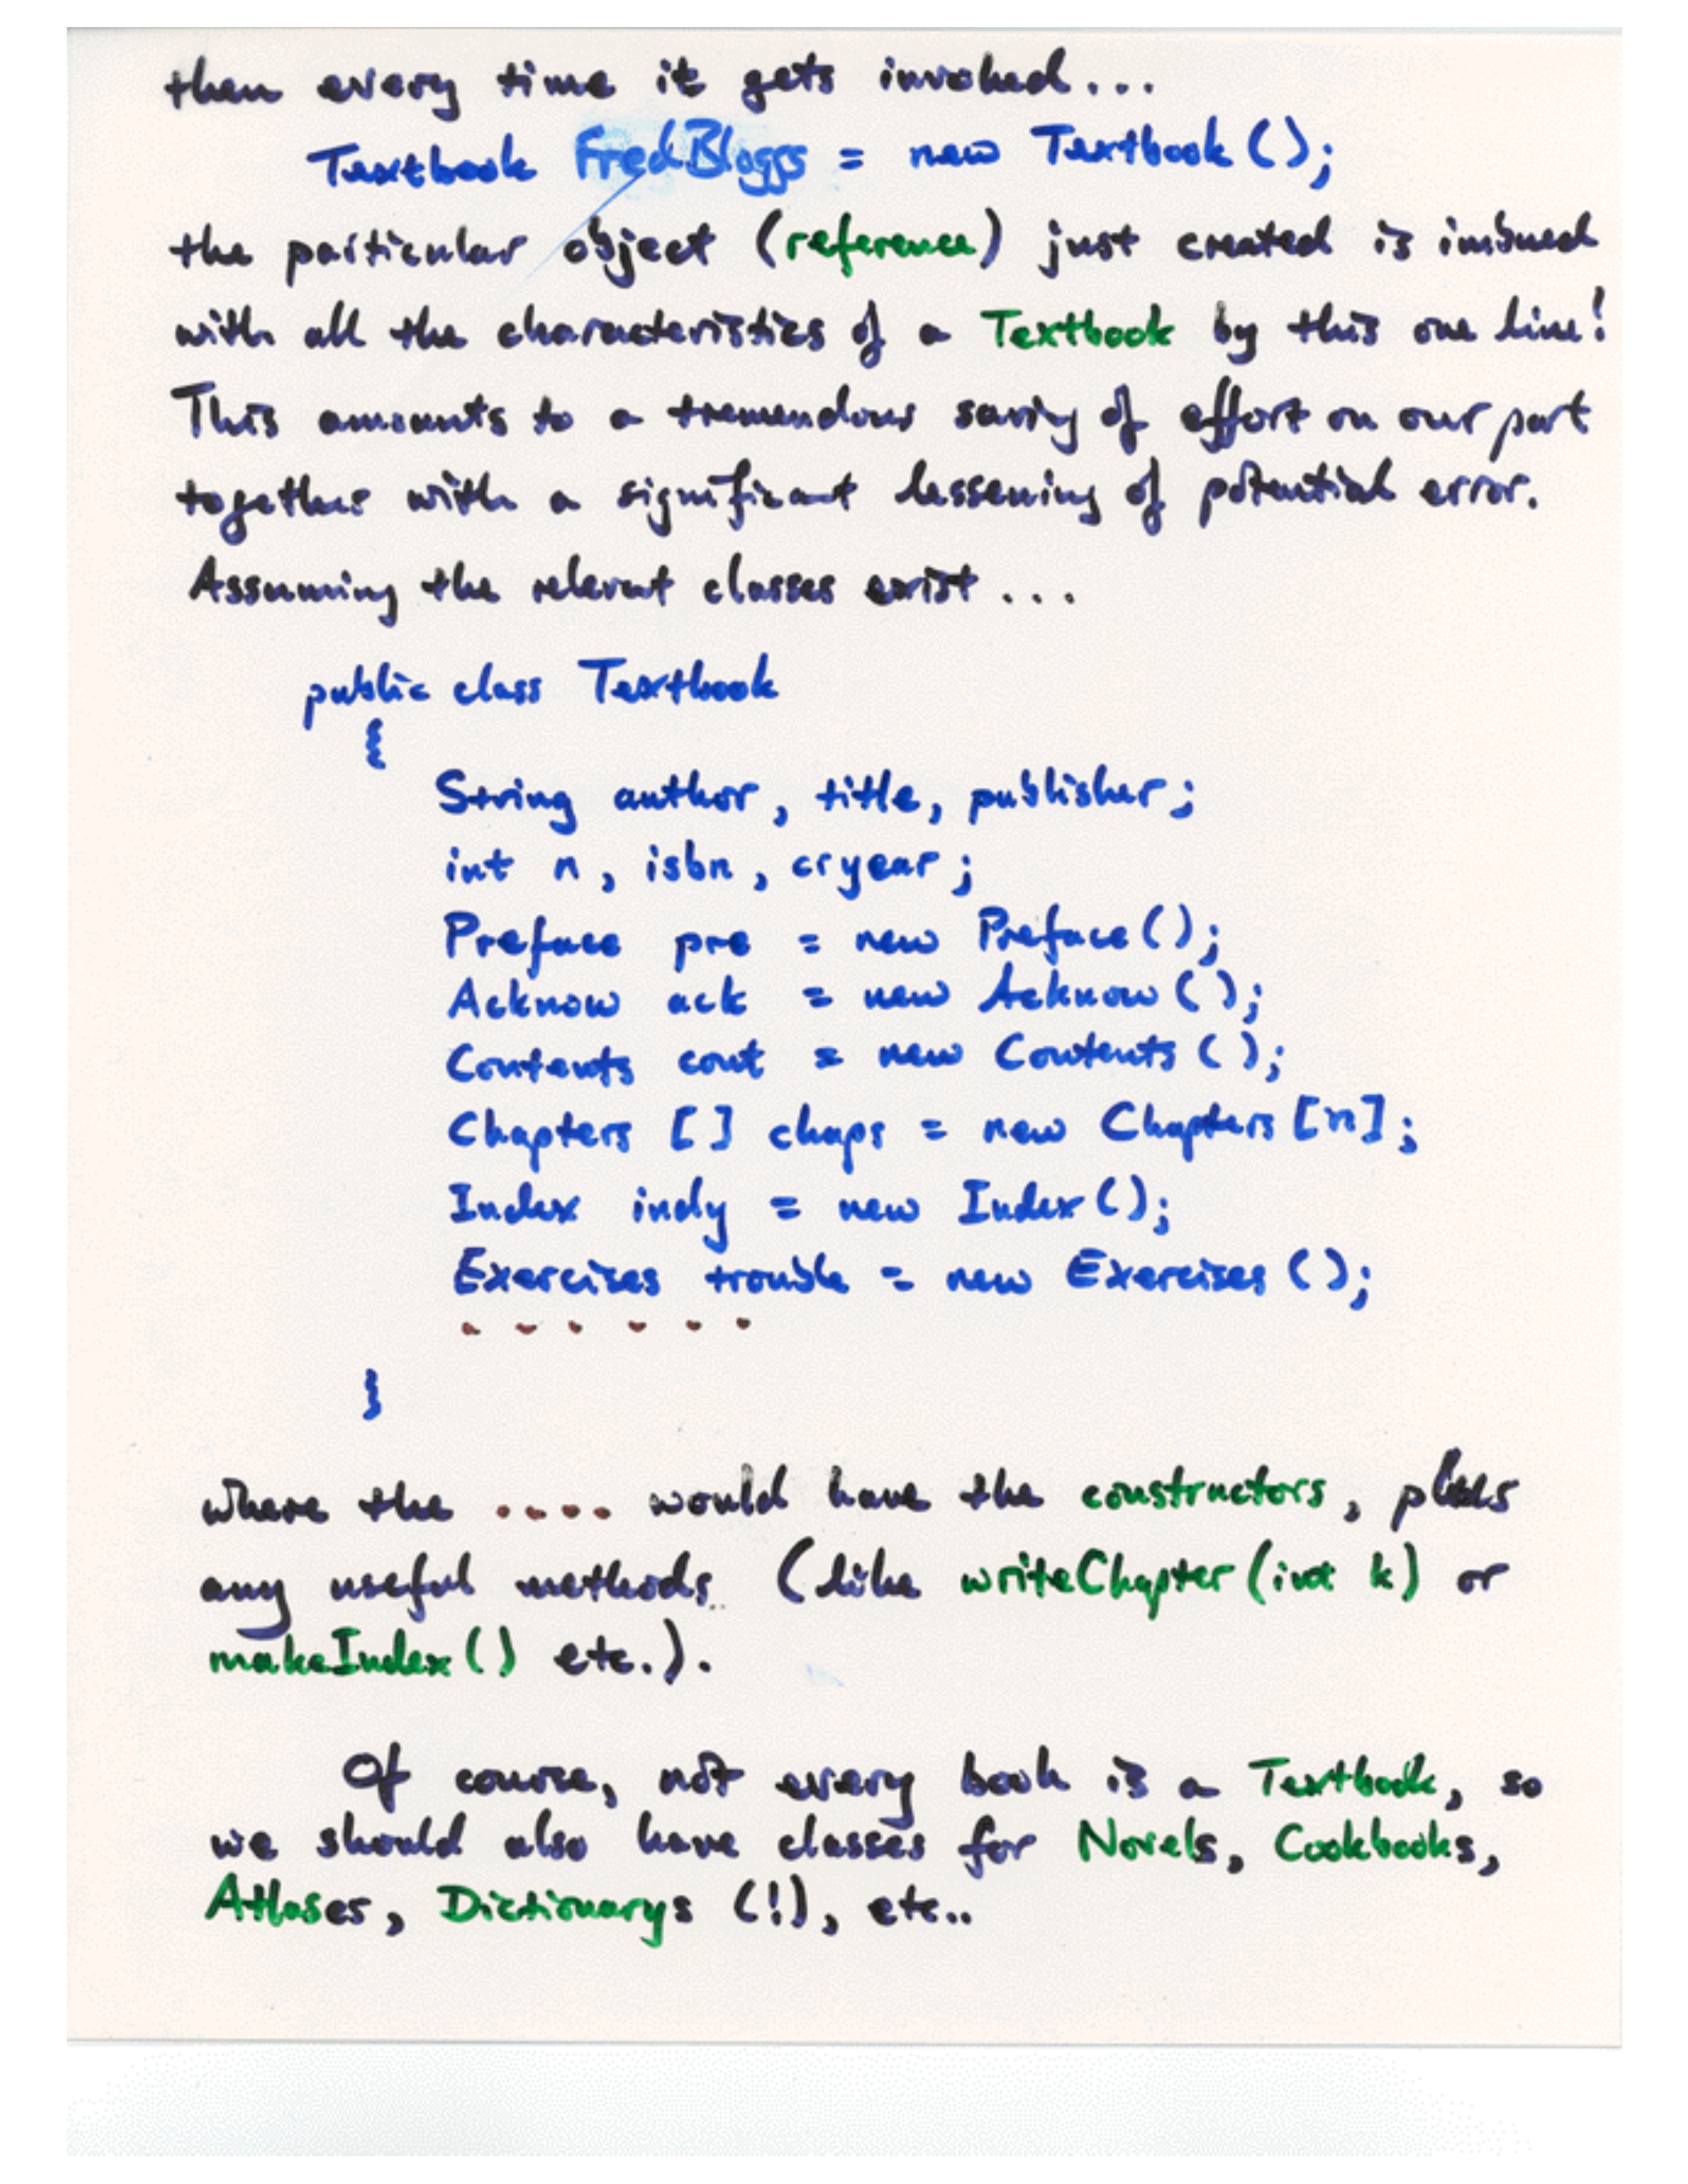 then every time it gets invoked...
Textbook FredBloggs = new Textbook();
the particular object (reference) just created is imbued
with all the characteristics of a Textbook by this one line!
This amounts to a tremendous saving of effort on our part
together with a significant lessening of potential error.
Assuming the relevant classes exist ...
public class Textbook
{
String author, title, publisher;
int n, isbn, cryear;
Preface pre = new Preface();
Acknow ack = new Acknow();
Contents cont = new Contents();
Chapters [] chaps = new Chapters [n];
Index indy = new Index();
Exercises trouble = new Exercises();
. . . . . .
}
where the .... would have the constructors, plus
any useful methods (like writeChapter(int k) or
makeIndex() etc.).
Of course, not every book is a Textbook, so
we should also have classes for Novels, Cookbooks,
Atlases, Dictionarys (!), etc..